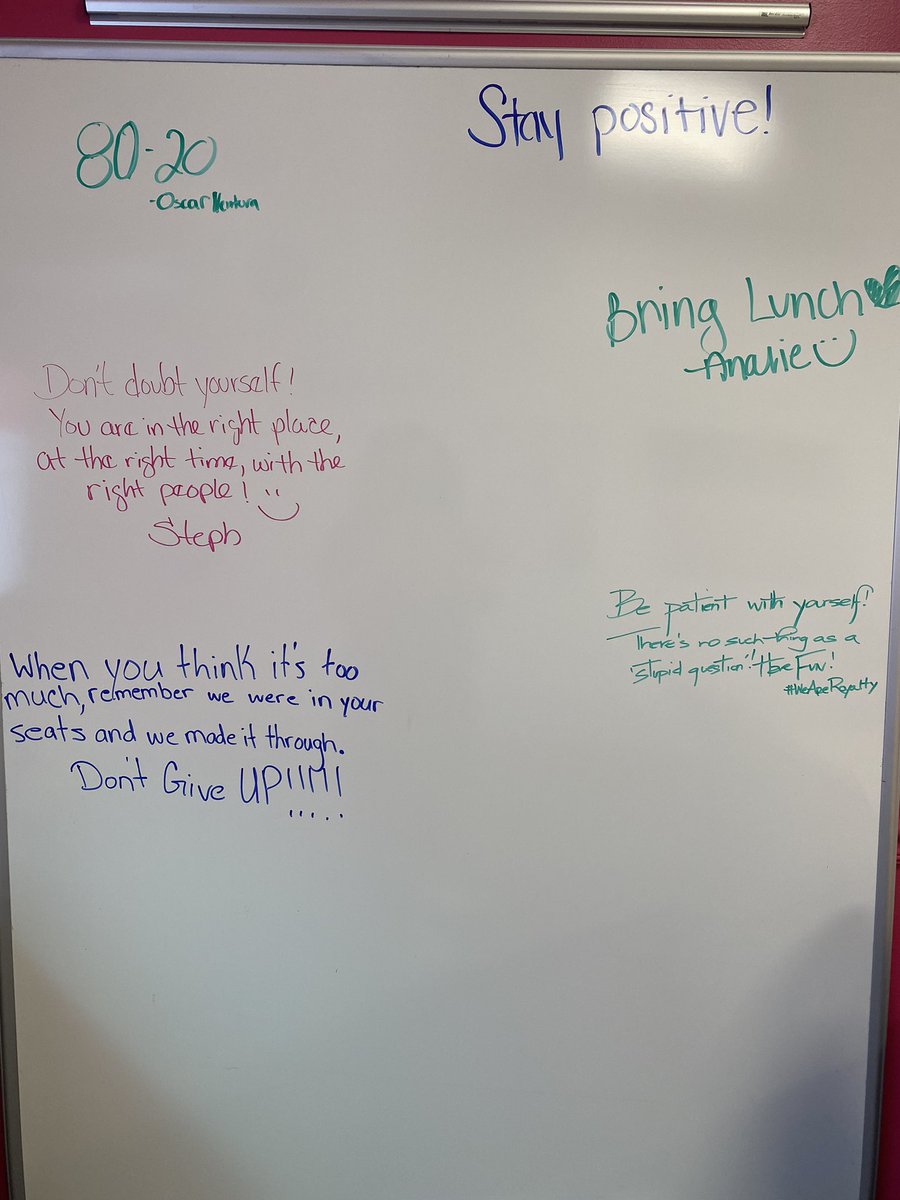 Stay positive!
80-20
-Oscar Ventura
Bring Lunch
-Analie
Don't doubt yourself!
You are in the right place,
at the right time, with the
right people!
Steph
Be patient with yourself!
There's no such thing as a
"stupid question"! Have Fun!
#WeAreRoyalty
When you think it's too
much, remember we were in your
seats and we made it through.
Don't Give UP!!!!!